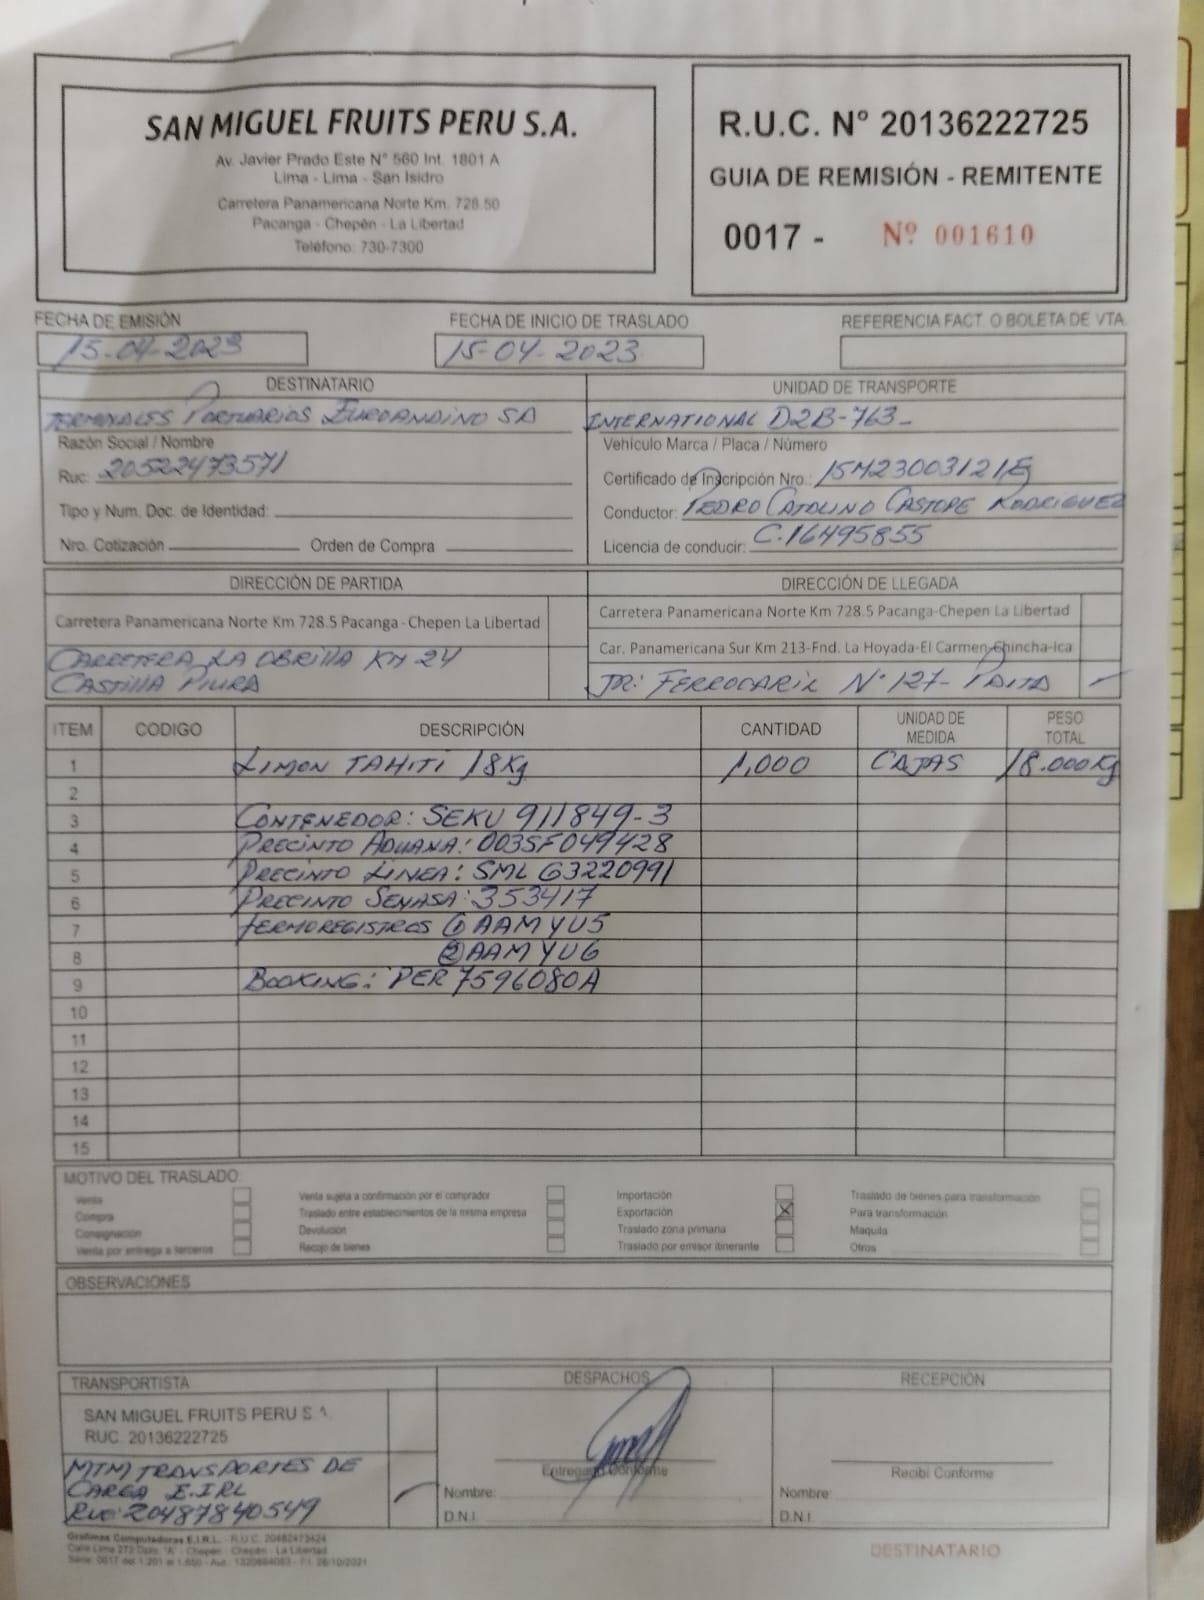 SAN MIGUEL FRUITS PERU S.A.
Av. Javier Prado Este N° 560 Int. 1801 A
Lima - Lima - San Isidro
Carretera Panamericana Norte Km. 728.50
Pacanga - Chepén - La Libertad
Teléfono: 730-7300
R.U.C. N° 20136222725
GUIA DE REMISIÓN - REMITENTE
0017 - Nº 001610
FECHA DE EMISIÓN
15-04-2023
FECHA DE INICIO DE TRASLADO
15-04-2023
REFERENCIA FACT. O BOLETA DE VTA.
DESTINATARIO
TERMINALES PORTUARIOS EUROANDINO SA
Razón Social / Nombre
Ruc: 20522473571
Tipo y Num. Doc. de Identidad:
Nro. Cotización Orden de Compra
UNIDAD DE TRANSPORTE
INTERNATIONAL D2B-763-
Vehículo Marca / Placa / Número
Certificado de Inscripción Nro.: 15M23003121E
Conductor: PEDRO CATOLINO CASTOPE RODRIGUEZ
Licencia de conducir: C.16495855
DIRECCIÓN DE PARTIDA
Carretera Panamericana Norte Km 728.5 Pacanga-Chepen La Libertad
CARRETERA LA OBRILLA KM 24
CASTILLA PIURA
DIRECCIÓN DE LLEGADA
Carretera Panamericana Norte Km 728.5 Pacanga-Chepen La Libertad
Car. Panamericana Sur Km 213-Fnd. La Hoyada-El Carmen-Chincha-Ica
JR: FERROCARIL N°127- PAITA
ITEM CODIGO DESCRIPCIÓN CANTIDAD UNIDAD DE MEDIDA PESO TOTAL
1 LIMON TAHITI 18Kg 1,000 CAJAS 18.000Kg
2
3 CONTENEDOR: SEKU 911849-3
4 PRECINTO ADUANA: 0035F049428
5 PRECINTO LINEA: SML G3220991
6 PRECINTO SENASA: 353417
7 TERMOREGISTROS ① AAMYU5
8 ② AAMYU6
9 BOOKING: PER7596080A
10
11
12
13
14
15
MOTIVO DEL TRASLADO:
Venta
Compra
Consignación
Venta por entrega a terceros
Venta sujeta a confirmación por el comprador
Traslado entre establecimientos de la misma empresa
Devolución
Recojo de bienes
Importación
Exportación X
Traslado zona primaria
Traslado por emisor itinerante
Traslado de bienes para transformación
Para transformación
Maquila
Otros
OBSERVACIONES
TRANSPORTISTA
SAN MIGUEL FRUITS PERU S.A.
RUC. 20136222725
MTM TRANSPORTES DE
CARGA E.IRL
RUC: 20487840549
DESPACHOS
Entregado Conforme
Nombre:
D.N.I.
RECEPCIÓN
Recibi Conforme
Nombre:
D.N.I.
Grafimas Computadoras E.I.R.L. - R.U.C. 20482473424
Calle Lima 272 Dpto. "A" - Chepén - Chepén - La Libertad
Serie: 0017 del 1,201 al 1,650 - F.I. 26/10/2021
DESTINATARIO